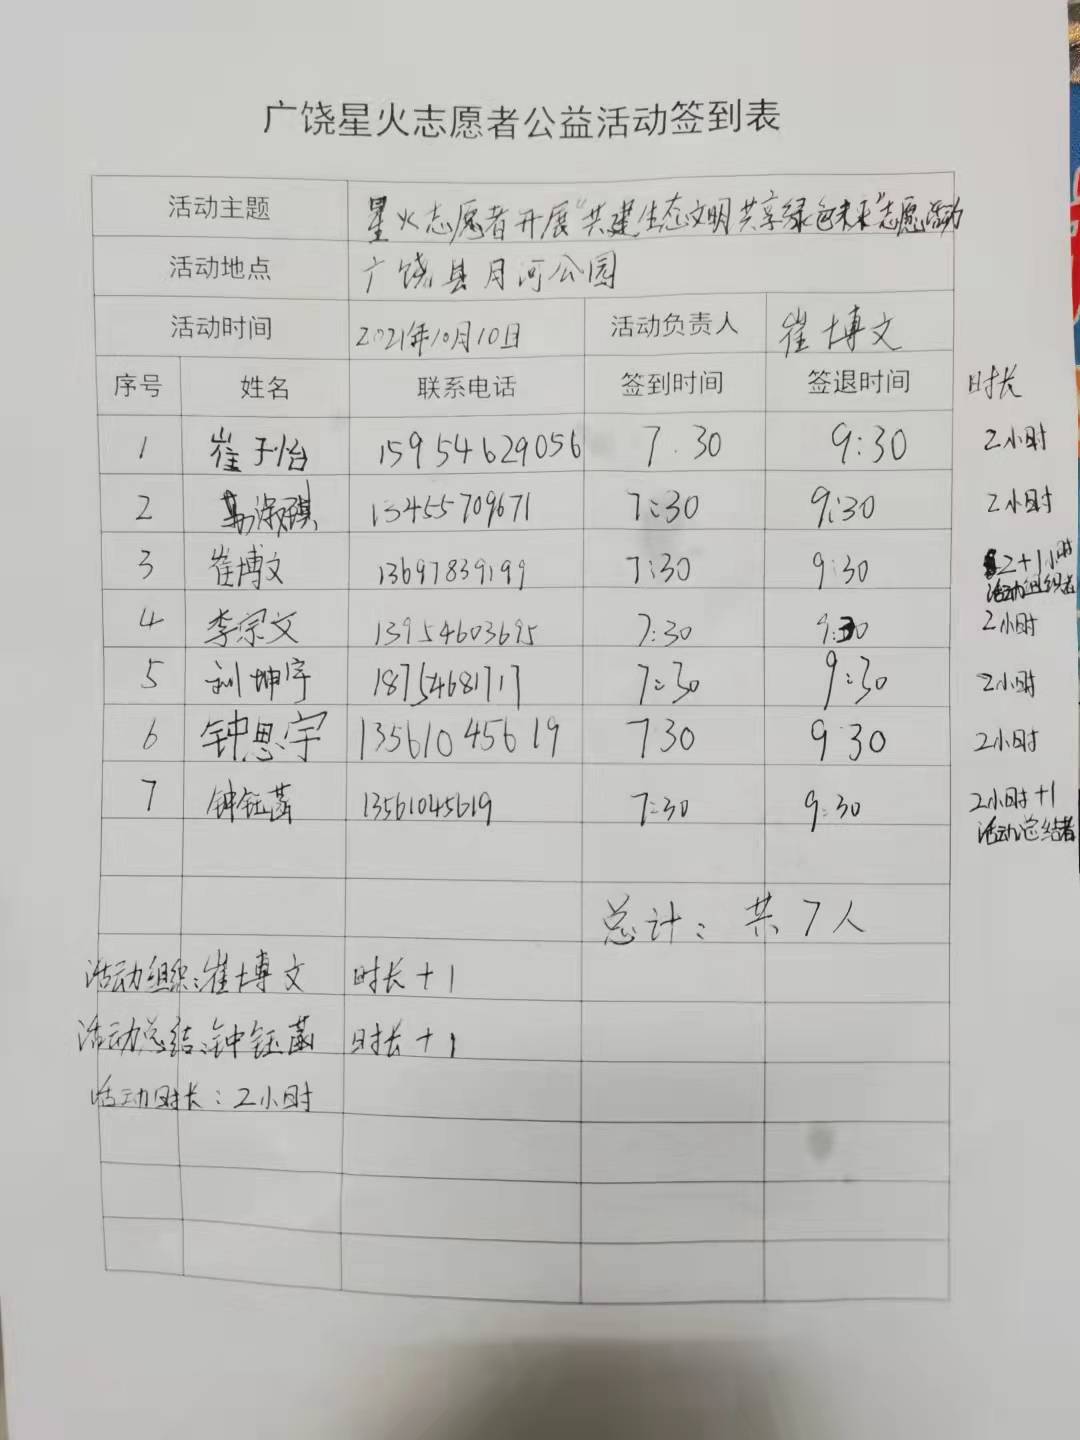 广饶星火志愿者公益活动签到表
活动主题 星火志愿者开展“共建生态文明共享绿色未来”志愿活动
活动地点 广饶县月河公园
活动时间 2021年10月10日 活动负责人 崔博文
序号 姓名 联系电话 签到时间 签退时间 时长
1 崔子怡 15954629056 7.30 9:30 2小时
2 13455709671 7:30 9:30 2小时
3 崔博文 13697839199 7:30 9:30 2+1小时
活动组织者
4 李宗文 13954603695 7:30 9:30 2小时
5 刘坤宇 18754681717 7:30 9:30 2小时
6 钟思宇 13561045619 730 9:30 2小时
7 钟钰菡 13561045619 7:30 9:30 2小时+1
活动总结者
总计：共7人
活动组织：崔博文 时长+1
活动总结：钟钰菡 时长+1
活动时长：2小时